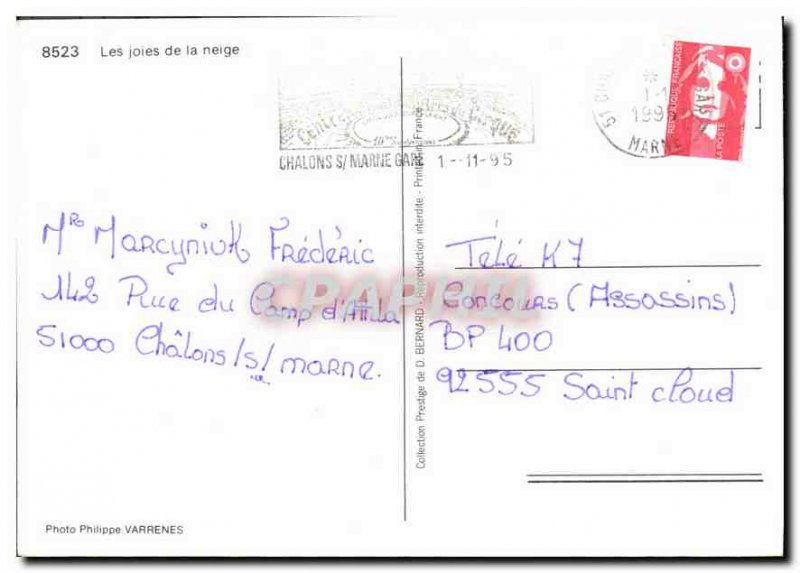 8523 Les joies de la neige
CHALONS S/ MARNE GARE 1--11-95
MARNE
RÉPUBLIQUE FRANÇAISE
LA POSTE
Mr Marcyniuk Frédéric
142 Rue du Camp d'Attila
51000 Châlons/s/marne.
Télé K7
Concours (Assassins)
BP 400
92555 Saint Cloud
Collection Prestige de D. BERNARD - Reproduction interdite - Printed in France
Photo Philippe VARRENES